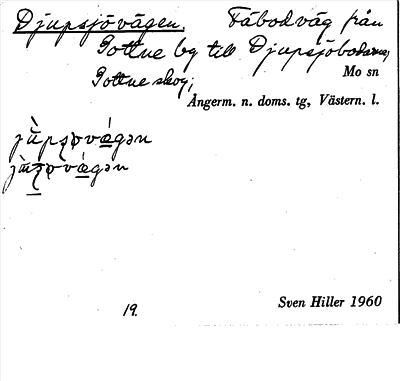 Djupsjövägen. Fäbodväg från
Gottne by till Djupsjöbodarna,
Gottne skog;
Mo sn
Ångerm. n. doms. tg, Västern. l.
19.
Sven Hiller 1960